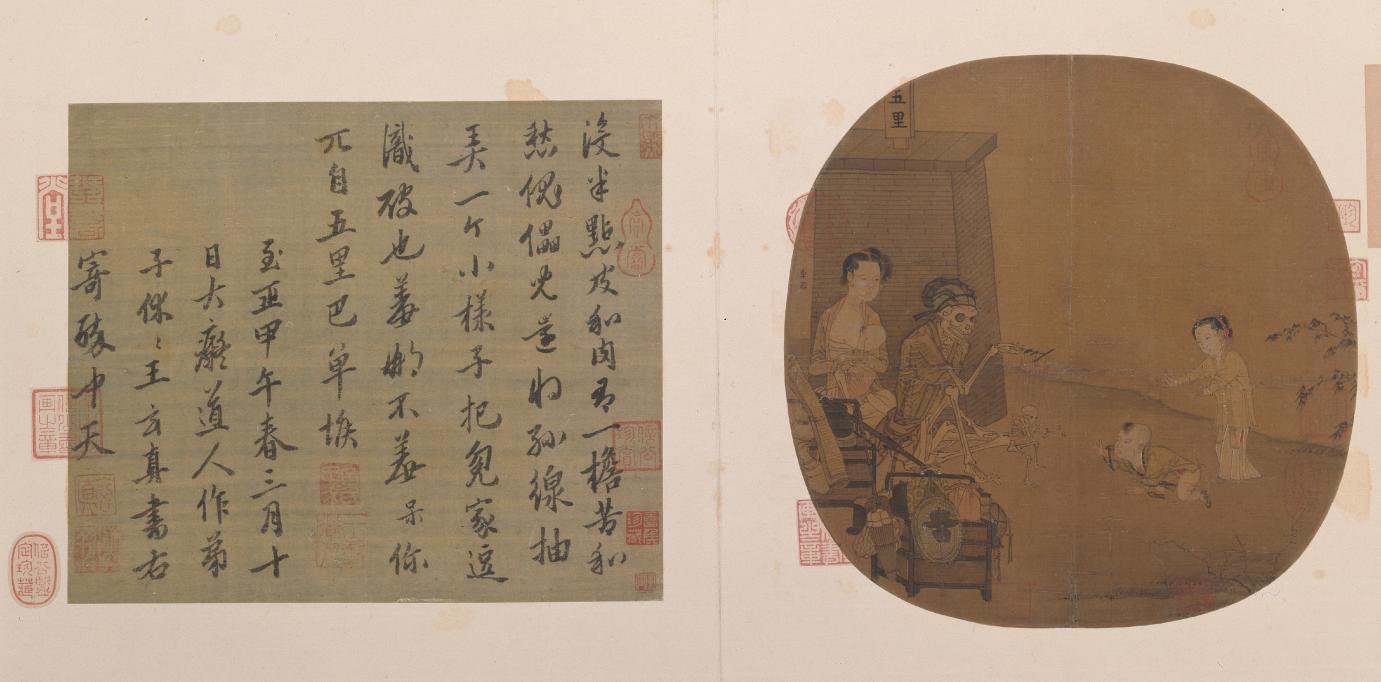 没半點皮和肉有一擔苦和
愁傀儡兒還將絲線抽
弄一个小樣子把冤家逗
識破也羞那不羞呆你
兀自五里巴单堠
至正甲午春三月十
日大癡道人作弟
子休休王玄真書右
寄醉中天
五里
李嵩